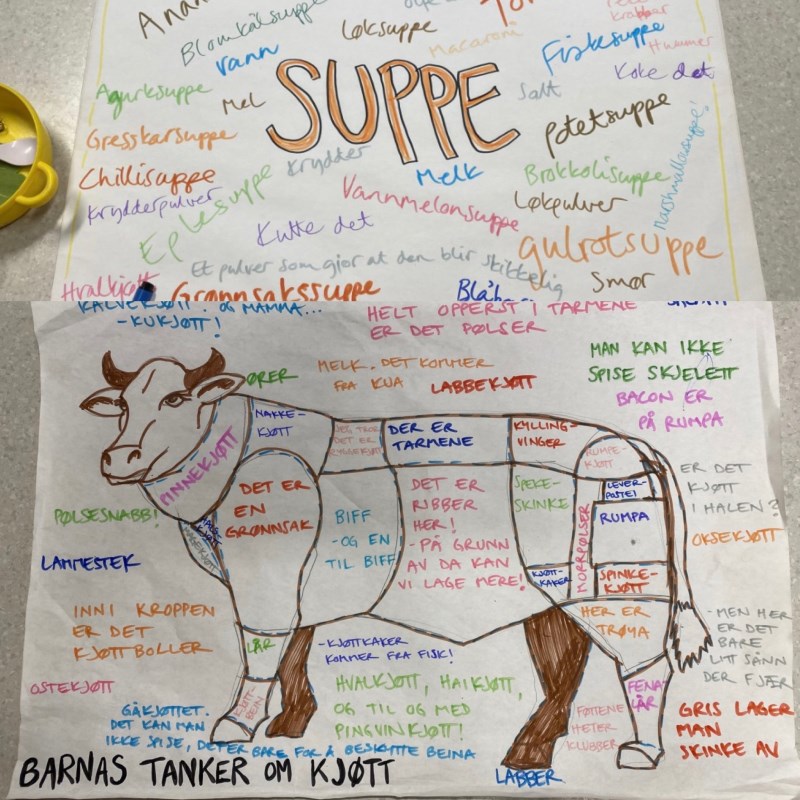 Blomkålsuppe
Løksuppe
Macaroni
Fiskesuppe
Hummer
Vann
Agurksuppe
Mel
SUPPE
Salt
Koke det
Gresskarsuppe
Krydder
Potetsuppe
Chillisuppe
Melk
Brokkolisuppe
Marshmallosuppe!
Krydderpulver
Eplesuppe
Vannmelonsuppe
Løkpulver
Kutte det
gulrotsuppe
Et pulver som gjør at den blir skikkelig
Hvalkjøtt
Grønnsakssuppe
Smør
KALVEKJØTT. OG MAMMA...
-KUKJØTT!
HELT OPPERST I TARMENE
ER DET PØLSER
MAN KAN IKKE
SPISE SKJELETT
ØRER
MELK. DET KOMMER
FRA KUA
LABBEKJØTT
BACON ER
PÅ RUMPA
NAKKE-
KJØTT
JEG TROR
DET ER
DER ER
TARMENE
KYLLING-
VINGER
RUMPE-
KJØTT
PINNEKJØTT
ER DET
KJØTT
I HALEN?
DET ER
EN
GRØNNSAK
DET ER
RIBBER
HER!
-PÅ GRUNN
AV DA KAN
VI LAGE MERE!
SPEKE-
SKINKE
LEVER-
POSTEI
RUMPA
PØLSESNABB!
BIFF
-OG EN
TIL BIFF
MORRPØLSER
OKSEKJØTT
LAMMESTEK
KJØTT-
KAKER
SPINKE-
KJØTT
INNI KROPPEN
ER DET
KJØTTBOLLER
HER ER
TRØMA
-MEN HER
ER DET
BARE
LITT SÅNN
DER FJÆR
LÅR
-KJØTTKAKER
KOMMER FRA FISK!
OSTEKJØTT
KJØTT-
BEIN
HVALKJØTT, HAIKJØTT,
OG TIL OG MED
PINGVINKJØTT!
FENA-
LÅR
FØTTENE
HETER
KLUBBER
GRIS LAGER
MAN
SKINKE AV
GÅKJØTTET.
DET KAN MAN
IKKE SPISE, DET ER BARE FOR Å BESKYTTE BEINA
LABBER
BARNAS TANKER OM KJØTT